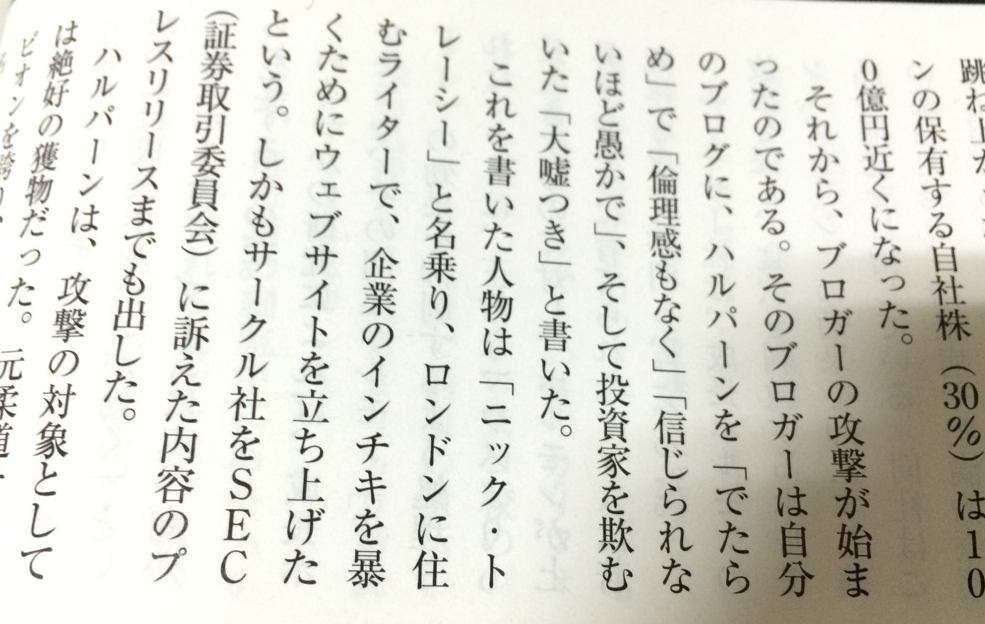 跳ね上が
ンの保有する自社株（30％）は10
0億円近くになった。
それから、ブロガーの攻撃が始ま
ったのである。そのブロガーは自分
のブログに、ハルパーンを「でたら
め」で「倫理感もなく」「信じられな
いほど愚かで」、そして投資家を欺む
いた「大嘘つき」と書いた。
これを書いた人物は「ニック・ト
レーシー」と名乗り、ロンドンに住
むライターで、企業のインチキを暴
くためにウェブサイトを立ち上げた
という。しかもサークル社をSEC
（証券取引委員会）に訴えた内容のプ
レスリリースまでも出した。
ハルパーンは、攻撃の対象として
は絶好の獲物だった。元柔道
ピオンを誇り